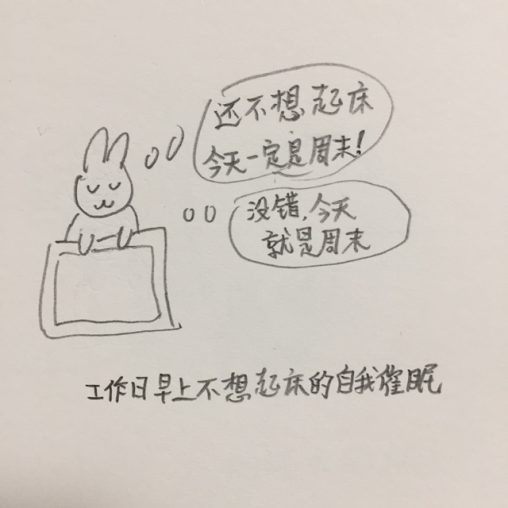 还不想起床
今天一定是周末！
没错，今天
就是周末
工作日早上不想起床的自我催眠